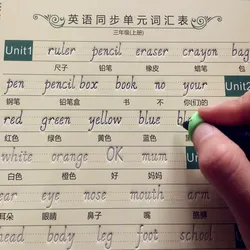 英语同步单元词汇表
三年级(上册)
Unit1 ruler pencil eraser crayon bag
尺子 铅笔 橡皮 蜡笔 包
pen pencil box book no your
钢笔 铅笔盒 书 不 你(们)的
red green yellow blue
红色 绿色 黄色 蓝色
white orange OK mum
白色 橙色 好 妈妈
ear eye nose mouth arm
耳朵 眼睛 鼻子 嘴 胳膊
head body leg foot school